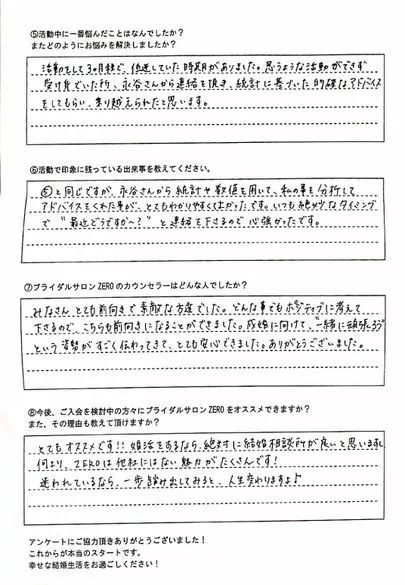 ⑤活動中に一番悩んだことはなんでしたか?
またどのようにお悩みを解決しましたか?
活動をして3ヶ月程で、低迷していた時期がありました。思うような活動ができず
受け身でいた所、永谷さんから連絡を頂き、統計に基づいた的確なアドバイス
をしてもらい、乗り越えられたと思います。
⑥活動で印象に残っている出来事を教えてください。
⑤と同じですが、永谷さんから統計や数値を用いて、私の事を分析して
アドバイスをくれた事が、とてもわかりやすくてよかったです。いつも絶妙なタイミング
で"最近どうですか~?"と連絡を下さるので心強かったです。
⑦ブライダルサロンZEROのカウンセラーはどんな人でしたか?
みなさん、とても前向きで素敵な方達でした。どんな事でもポジティブに考えて
下さるので、こちらも前向きになることができました。成婚に向けて、"一緒に頑張ろう"
という姿勢がすごく伝わってきて、とても安心できました。ありがとうございました。
⑧今後、ご入会を検討中の方々にブライダルサロンZEROをオススメできますか?
また、その理由も教えて頂けますか?
とてもオススメです!!婚活をするなら、絶対に結婚相談所が良いと思いますし
何より、ZEROは他社にはない魅力がたくさんです!
迷われているなら、一歩踏み出してみると、人生変わりますよ♪
アンケートにご協力頂きありがとうございました!
これからが本当のスタートです。
幸せな結婚生活をお過ごしください!